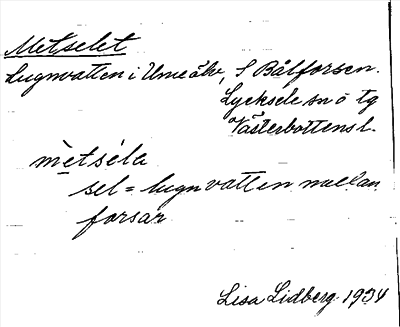 Metselet
Lugnvatten i Umeälv, S Bålforsen.
Lycksele sn o tg
Västerbottens l.
mètsèla
sel = lugnvatten mellan
forsar
Lisa Lidberg. 1934